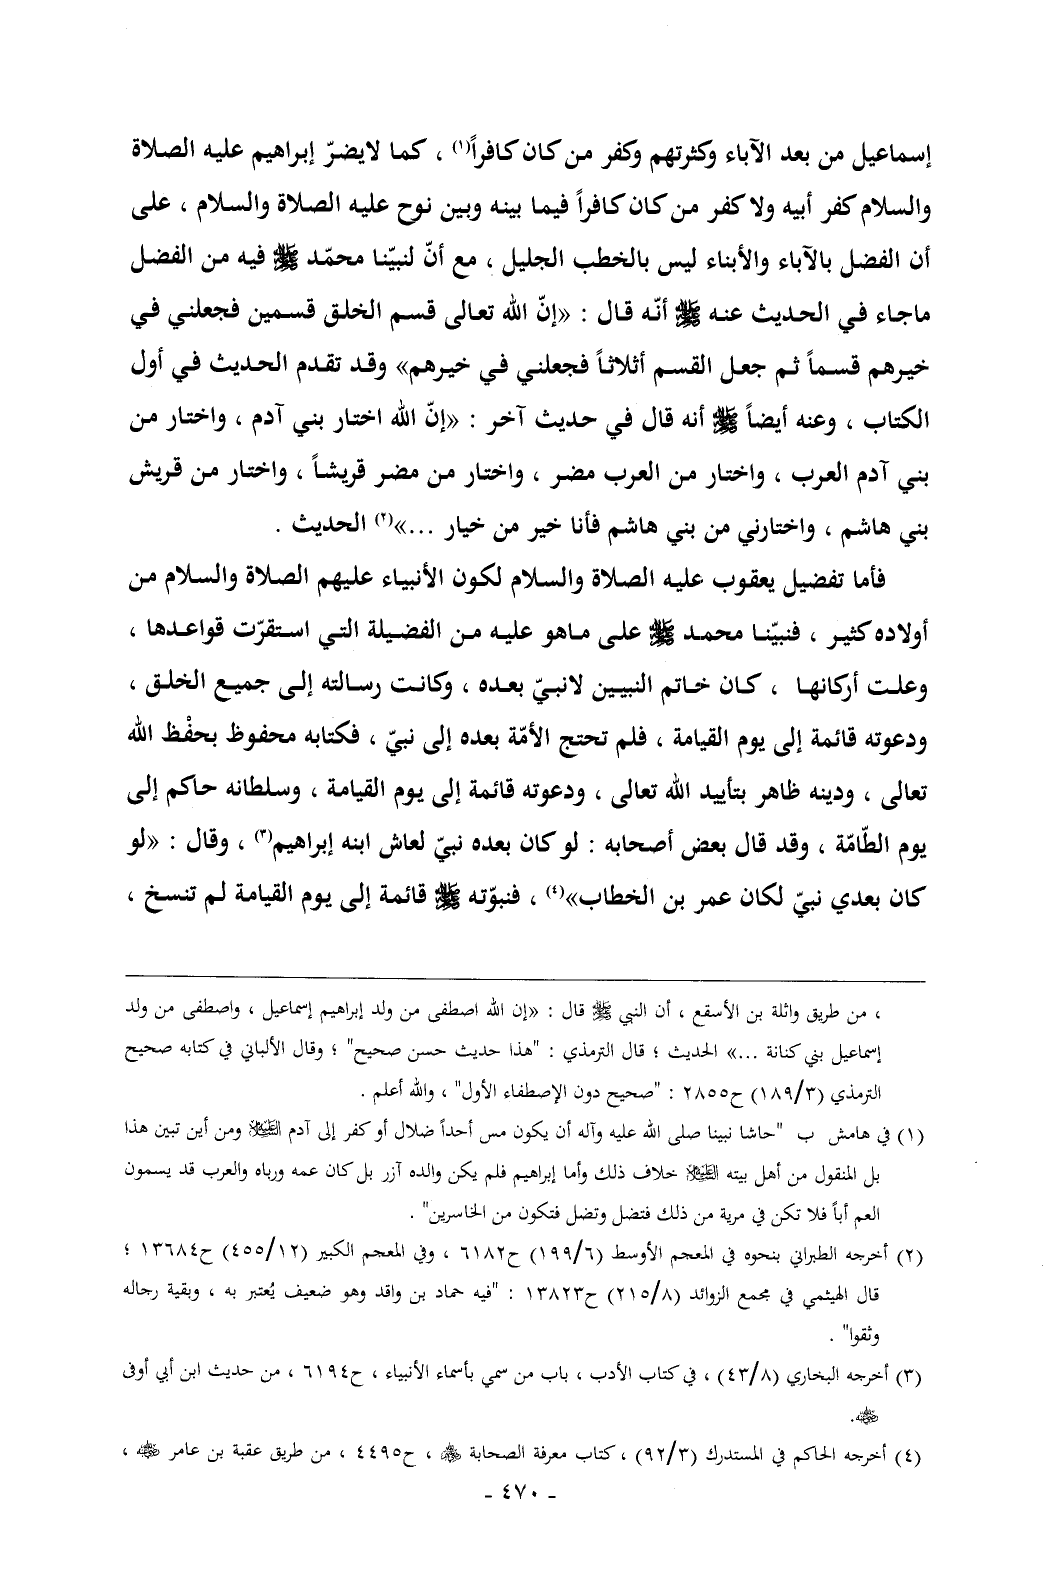 إسماعيل من بعد الآباء وكثرتهم وكفر من كان كافراً(١) ، كما لايضرّ إبراهيم عليه الصلاة
والسلام كفر أبيه ولا كفر من كان كافراً فيما بينه وبين نوح عليه الصلاة والسلام ، على
أن الفضل بالآباء والأبناء ليس بالخطب الجليل ، مع أنّ لنبيّنا محمّد ﷺ فيه من الفضل
ماجاء في الحديث عنه ﷺ أنّه قال : «إنّ الله تعالى قسم الخلق قسمين فجعلني في
خيرهم قسماً ثم جعل القسم أثلاثاً فجعلني في خيرهم» وقد تقدم الحديث في أول
الكتاب ، وعنه أيضاً ﷺ أنه قال في حديث آخر : «إنّ الله اختار بني آدم ، واختار من
بني آدم العرب ، واختار من العرب مضر ، واختار من مضر قريشاً ، واختار من قريش
بني هاشم ، واختارني من بني هاشم فأنا خير من خيار ...»(٢) الحديث .
فأما تفضيل يعقوب عليه الصلاة والسلام لكون الأنبياء عليهم الصلاة والسلام من
أولاده كثير ، فنبيّنا محمد ﷺ على ماهو عليه من الفضيلة التي استقرّت قواعدها ،
وعلت أركانها ، كان خاتم النبيين لانبيّ بعده ، وكانت رسالته إلى جميع الخلق ،
ودعوته قائمة إلى يوم القيامة ، فلم تحتج الأمّة بعده إلى نبيّ ، فكتابه محفوظ بحفْظ الله
تعالى ، ودينه ظاهر بتأييد الله تعالى ، ودعوته قائمة إلى يوم القيامة ، وسلطانه حاكم إلى
يوم الطّامّة ، وقد قال بعض أصحابه : لو كان بعده نبيّ لعاش ابنه إبراهيم(٣) ، وقال : «لو
كان بعدي نبيّ لكان عمر بن الخطاب»(٤) ، فنبوّته ﷺ قائمة إلى يوم القيامة لم تنسخ ،
، من طريق واثلة بن الأسقع ، أن النبي ﷺ قال : «إن الله اصطفى من ولد إبراهيم إسماعيل ، واصطفى من ولد
إسماعيل بني كنانة ...» الحديث ؛ قال الترمذي : "هذا حديث حسن صحيح" ؛ وقال الألباني في كتابه صحيح
الترمذي (١٨٩/٣) ح٢٨٥٥ : "صحيح دون الإصطفاء الأول" ، والله أعلم .
(١) في هامش ب "حاشا نبينا صلى الله عليه وآله أن يكون مس أحداً ضلال أو كفر إلى آدم العليه السلام ومن أين تبين هذا
بل المنقول من أهل بيته عليه السلام خلاف ذلك وأما إبراهيم فلم يكن والده آزر بل كان عمه ورباه والعرب قد يسمون
العم أباً فلا تكن في مرية من ذلك فتضل وتضل فتكون من الخاسرين" .
(٢) أخرجه الطبراني بنحوه في المعجم الأوسط (١٩٩/٦) ح٦١٨٢ ، وفي المعجم الكبير (٤٥٥/١٢) ح١٣٦٨٤ ؛
قال الهيثمي في مجمع الزوائد (٢١٥/٨) ح١٣٨٢٣ : "فيه حماد بن واقد وهو ضعيف يُعتبر به ، وبقية رجاله
وثقوا" .
(٣) أخرجه البخاري (٤٣/٨) ، في كتاب الأدب ، باب من سمي بأسماء الأنبياء ، ح٦١٩٤ ، من حديث ابن أبي أوفى
رضي الله عنه.
(٤) أخرجه الحاكم في المستدرك (٩٢/٣) ، كتاب معرفة الصحابة رضي الله عنهم ، ح٤٤٩٥ ، من طريق عقبة بن عامر رضي الله عنه ،
- ٤٧٠ -